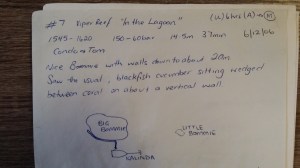 #7 Viper Reef "In the Lagoon"
1543-1620 150-60bar 14.5m 37min 6/12/06
Nice Bommie with walls down to about 20m
Saw the usual, blackfish cucumber sitting wedged
between coral on about a vertical wall
BIG Bommie
LITTLE Bommie